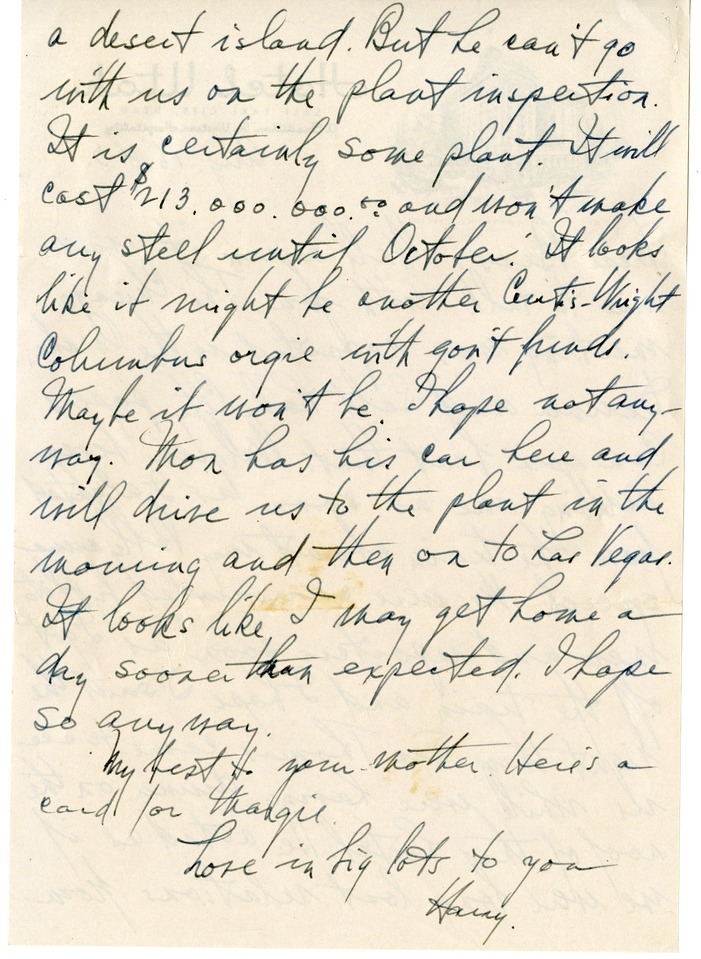 a desert island. But he can't go
with us on the plant inspection.
It is certainly some plant. It will
cost $213.000.000.00 and won't make
any steel until October! It looks
like it might be another Curtis-Wright
Columbus orgie with gov't funds.
Maybe it won't be. I hope not any-
way. Mon has his car here and
will drive us to the plant in the
morning and then on to Las Vegas.
It looks like I may get home a
day sooner than expected. I hope
so anyway.
My best to your mother. Here's a
card for Margie.
Love in big lots to you
Harry.